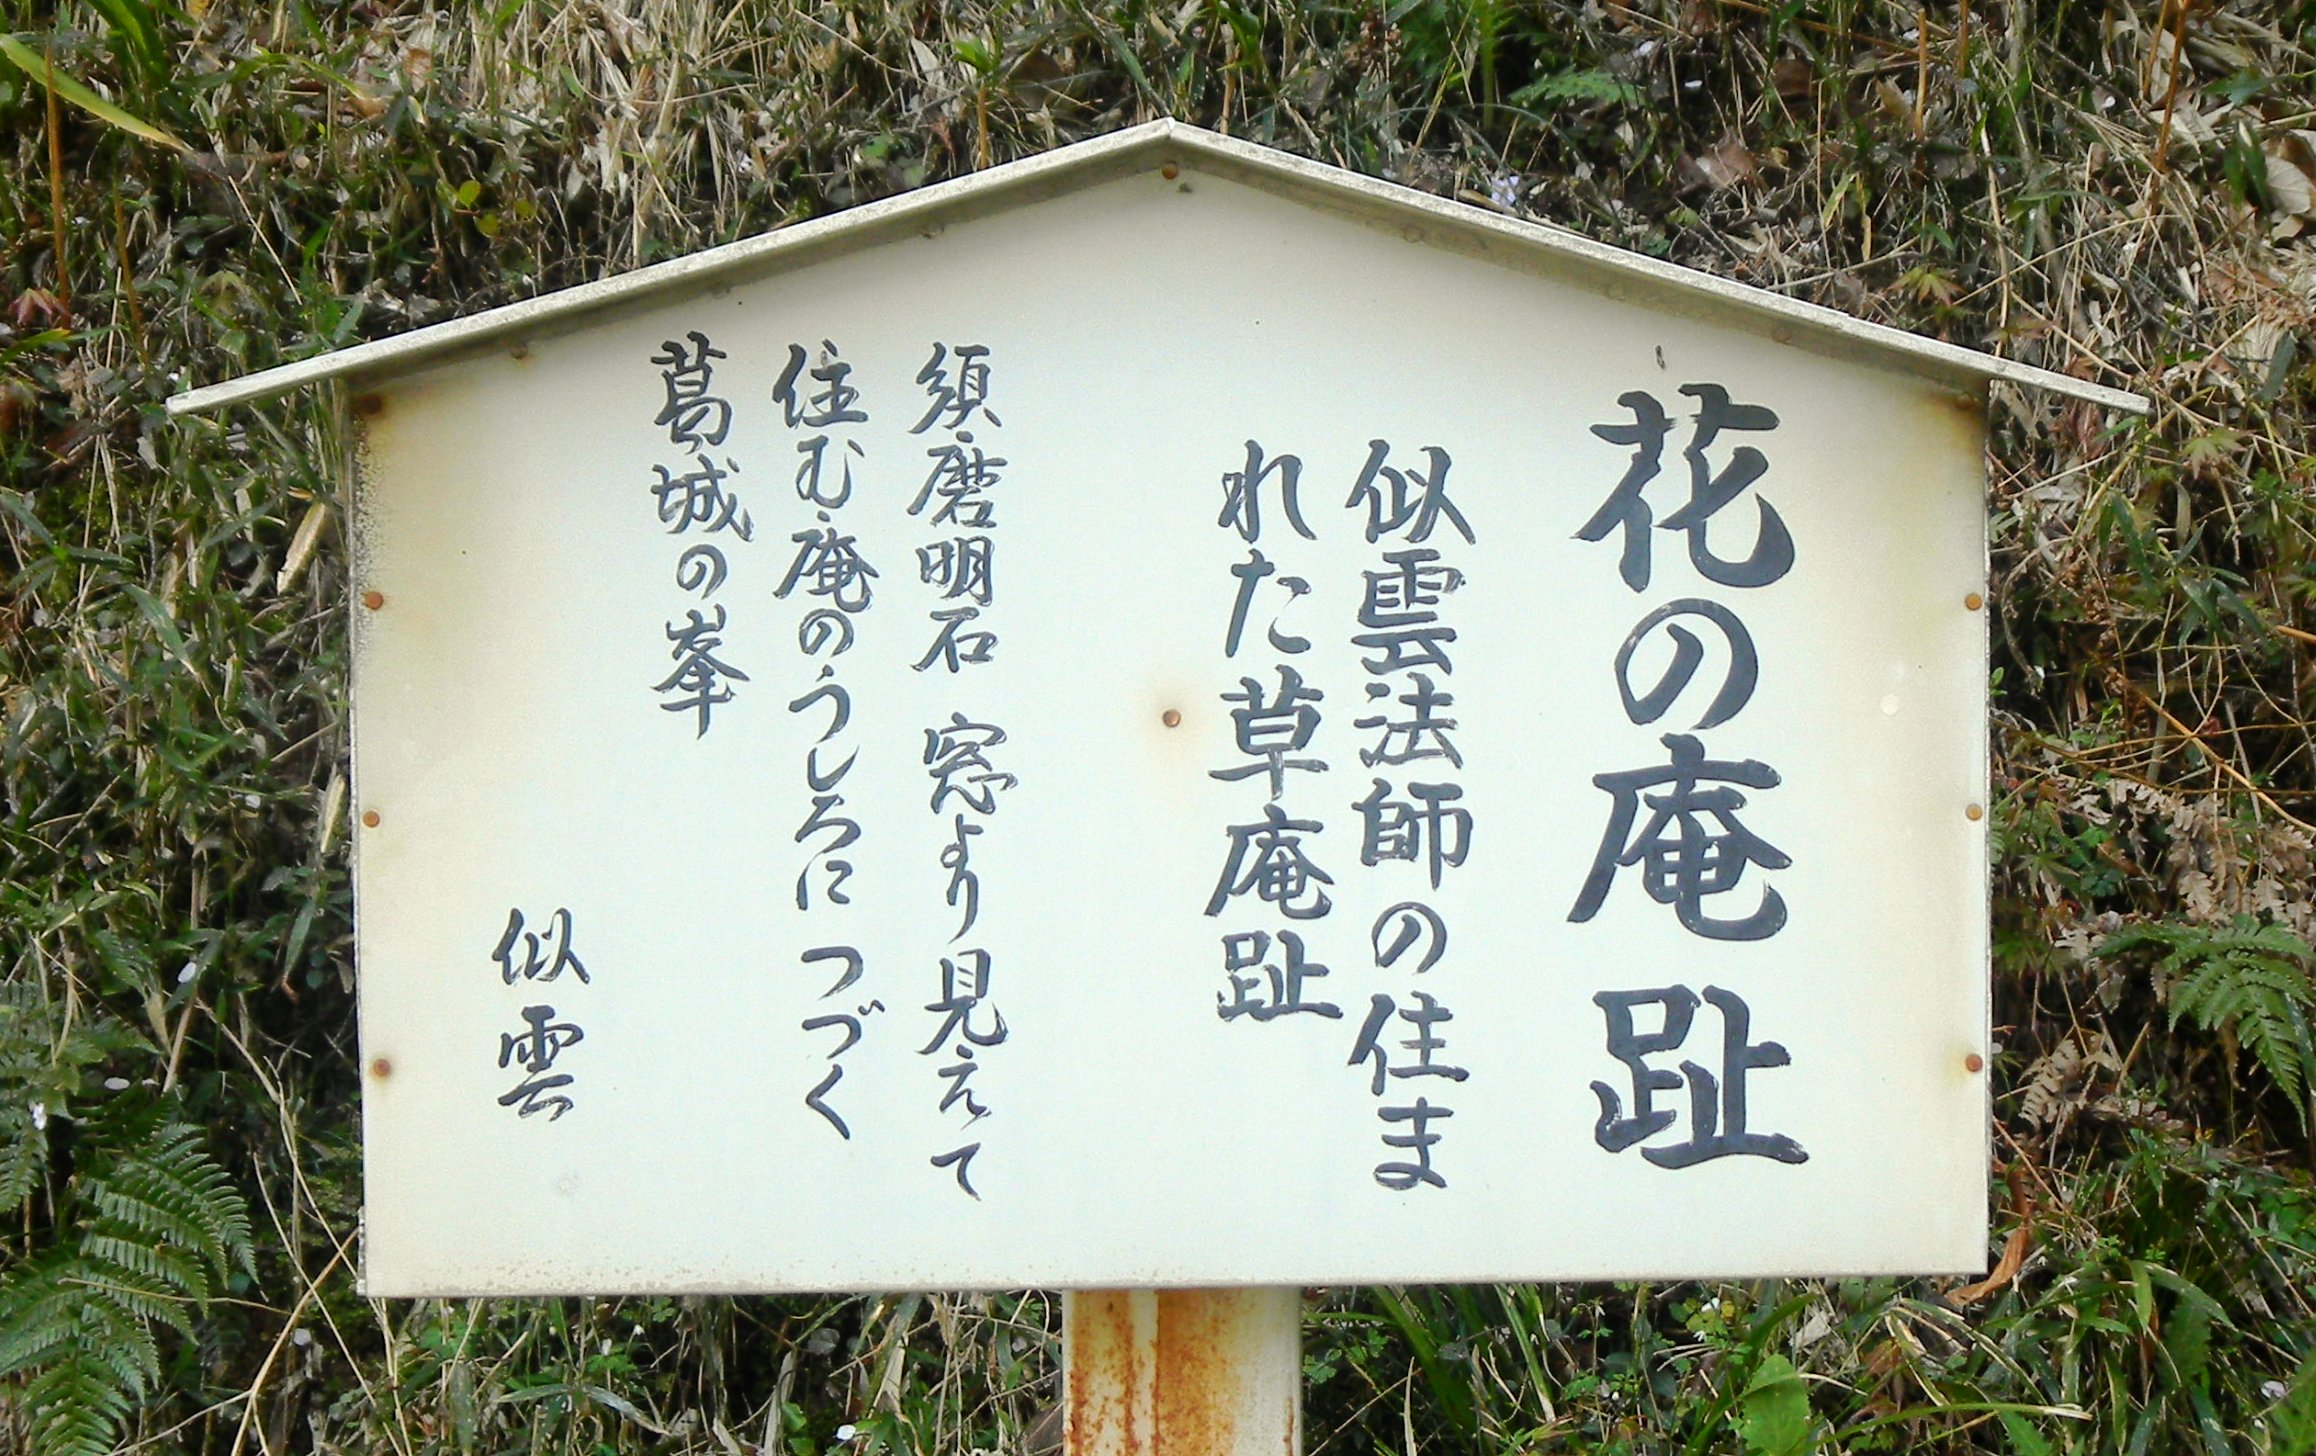 花の庵趾
似雲法師の住ま
れた草庵趾
須磨明石 窓より見えて
住む庵のうしろに つづく
葛城の峯
似雲